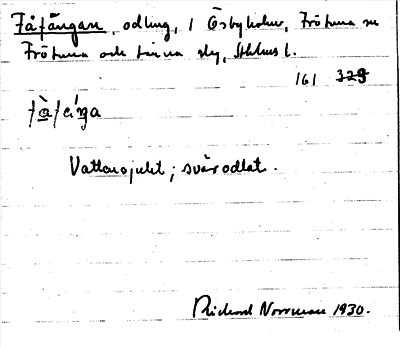 Fåfängan, odling, i Ösbyholm, Frötuna sn
Frötuna och Länna slg, Sthlms l.
161 329
få̀fäŋa
Vattensjukt; svårodlat.
Richard Norrman 1930.